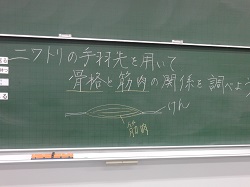 ニワトリの手羽先を用いて
骨格と筋肉の関係を調べよう
けん
筋肉